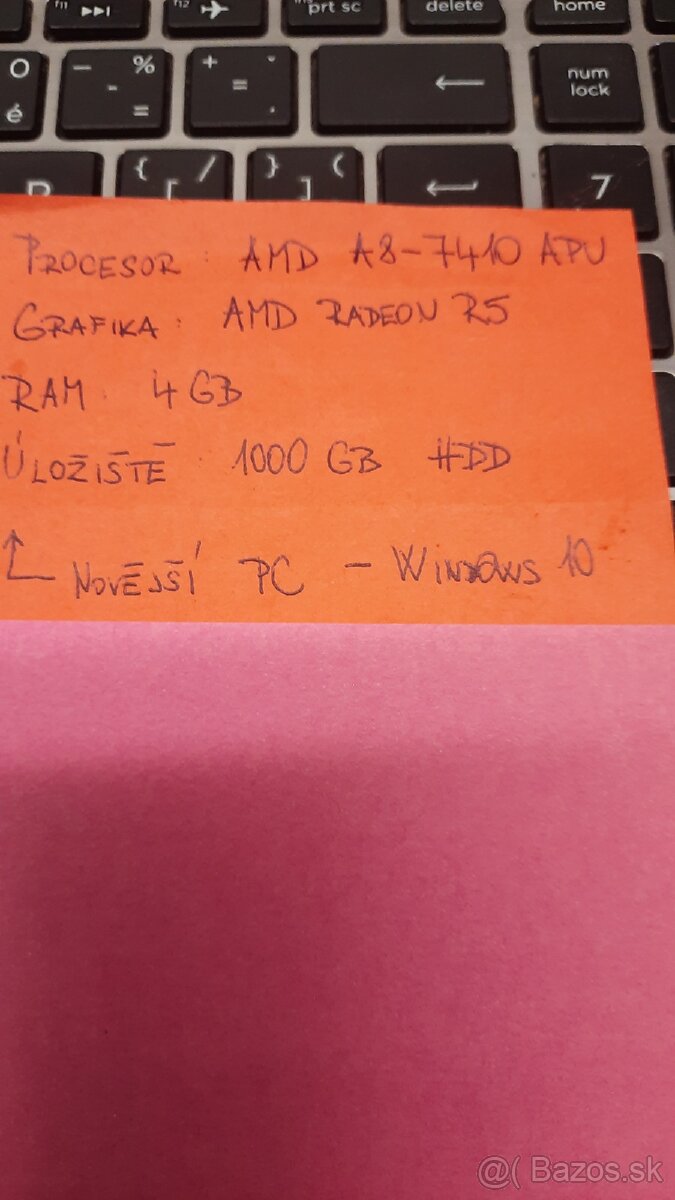 f11 ▸▸| f12 prt sc delete home
O é - % - = + ˇ = . ← num lock
{ [ / } ] ( ← 7
PROCESOR: AMD A8-7410 APU
GRAFIKA: AMD RADEON R5
RAM: 4 GB
ÚLOŽIŠTĚ 1000 GB HDD
NOVĚJŠÍ PC - WINDOWS 10
@( Bazos.sk